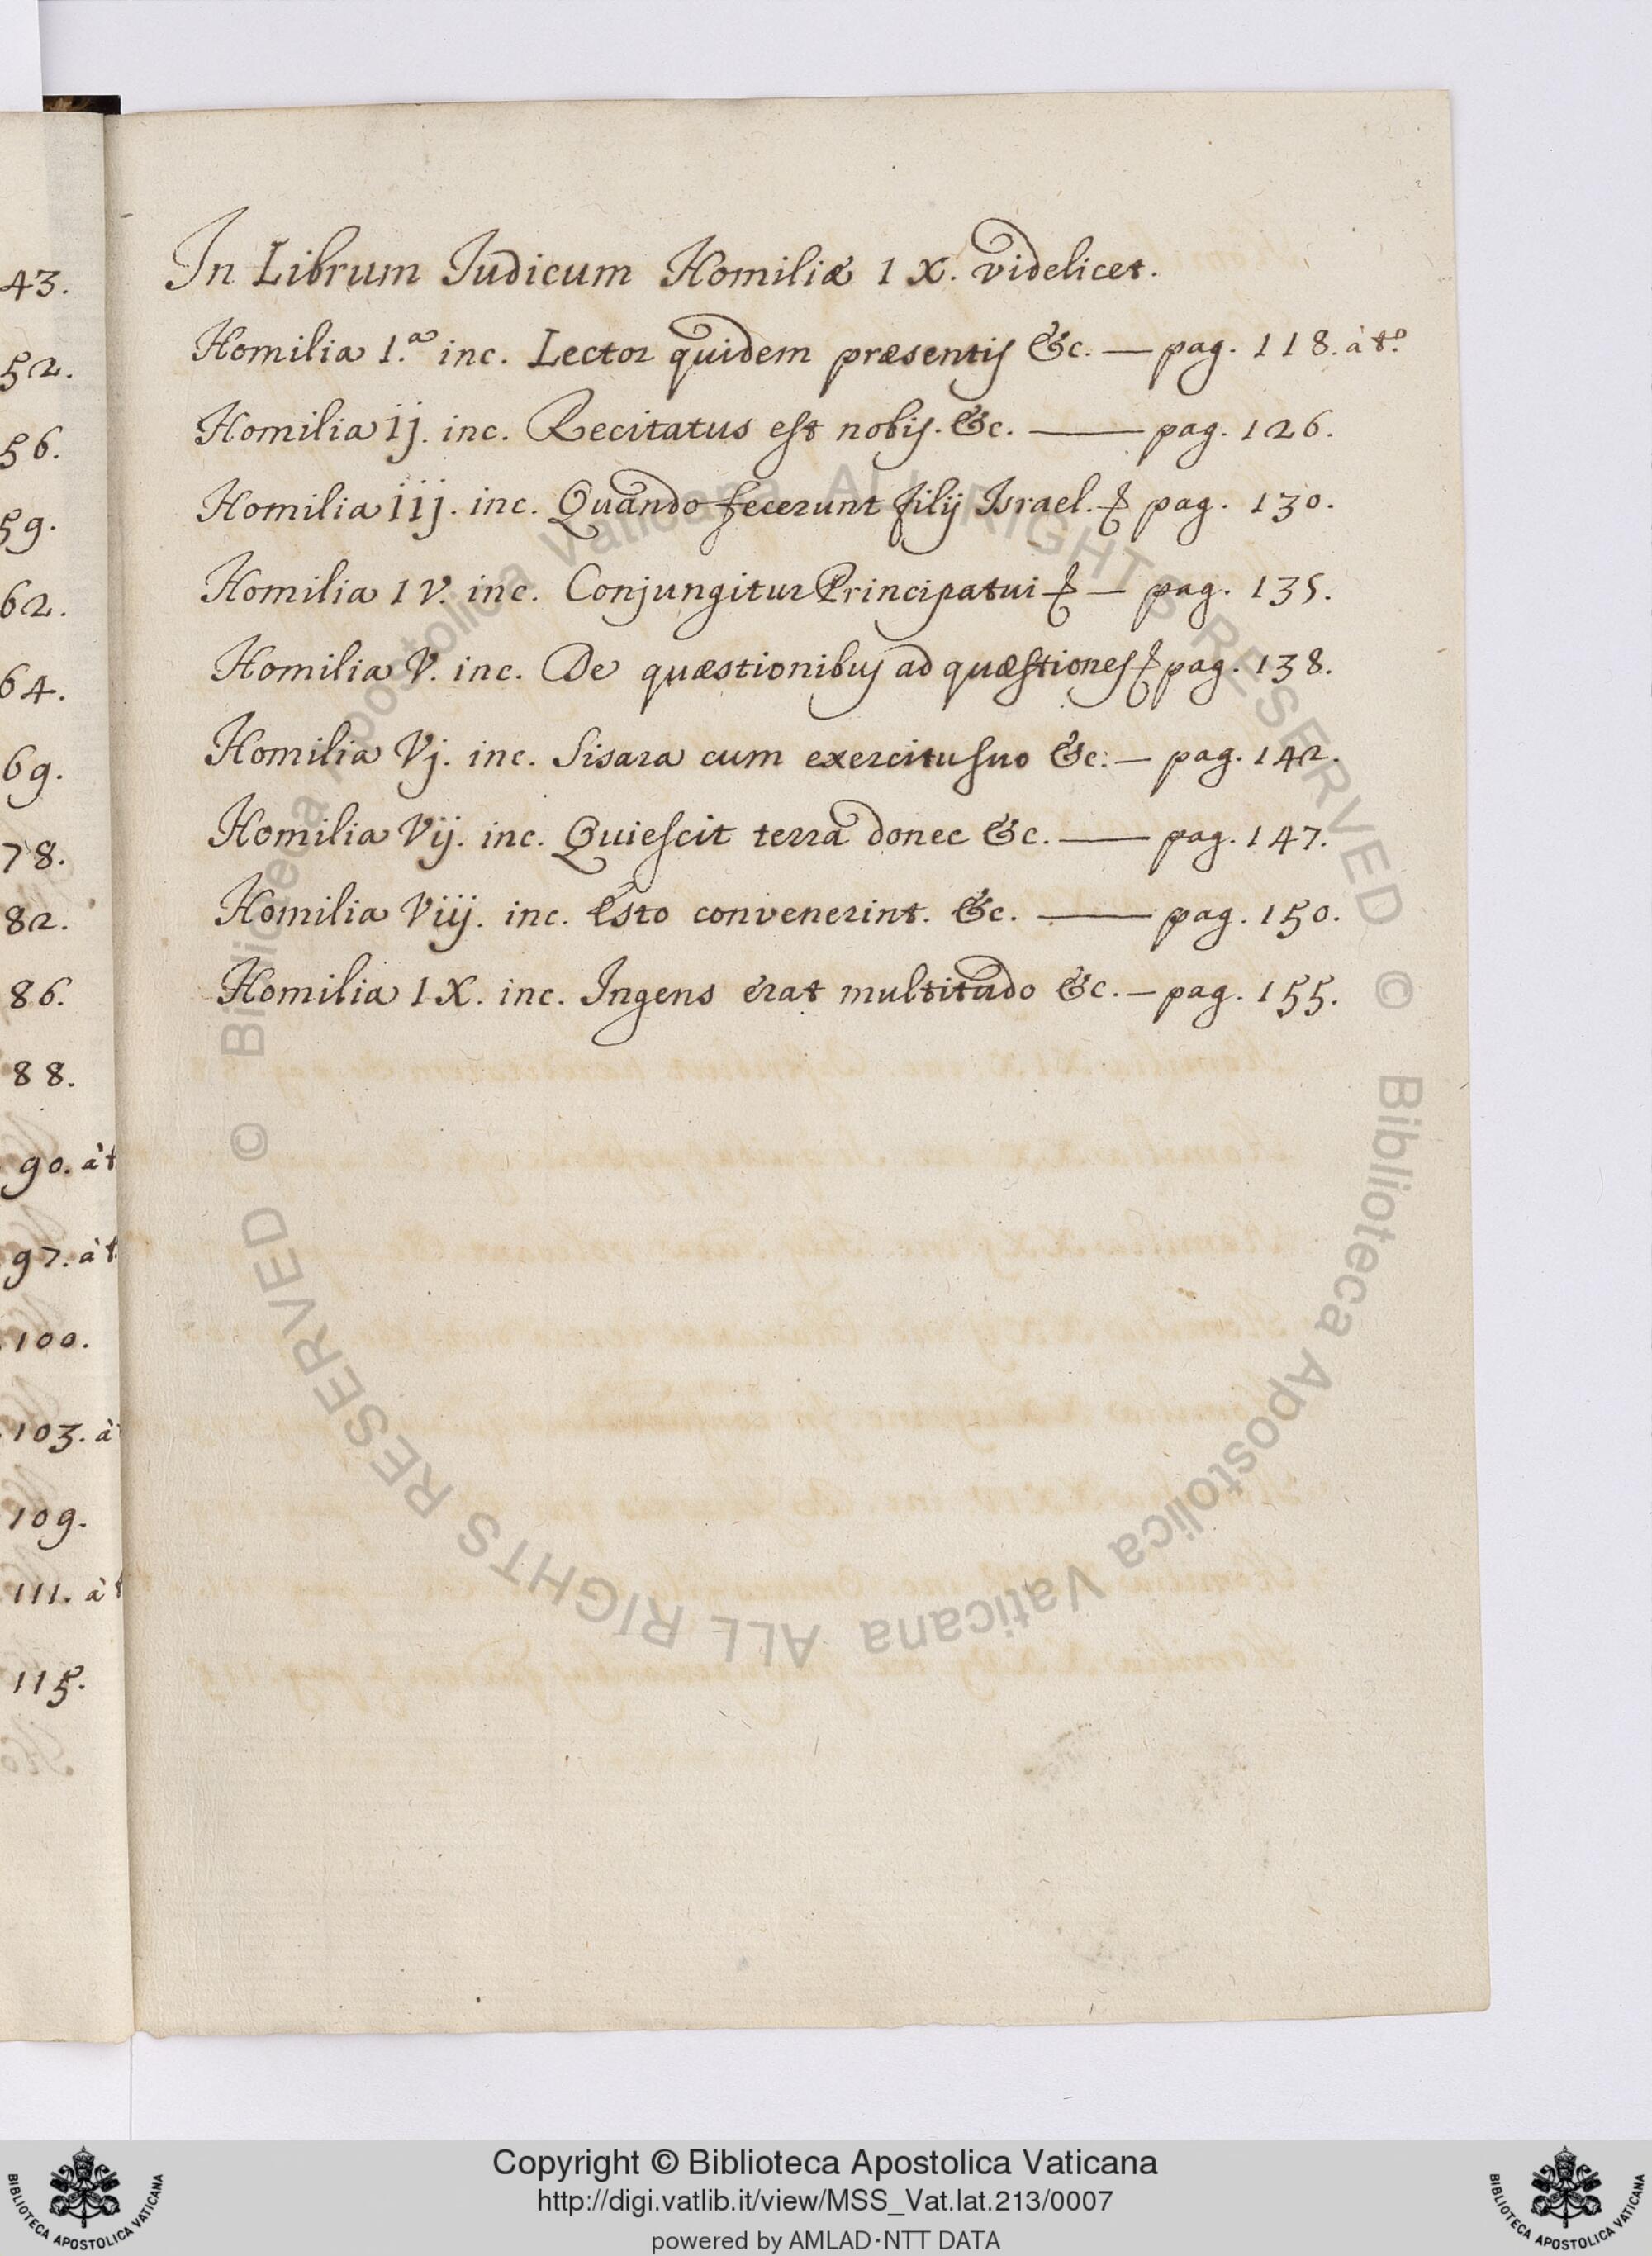 43.
52.
56.
59.
62.
64.
69.
78.
82.
86.
88.
90. àt
97. àt
100.
103. à
109.
111. àt
115.
In Librum Iudicum Homiliæ IX. videlicet.
Homilia I.ª inc. Lector quidem præsentis &c. — pag. 118. àtº.
Homilia ij. inc. Recitatus est nobis. &c. — pag. 126.
Homilia iij. inc. Quando fecerunt filij Israel. & pag. 130.
Homilia IV. inc. Conjungitur Principatui & — pag. 135.
Homilia V. inc. De quæstionibus ad quæstiones & pag. 138.
Homilia Vj. inc. Sisara cum exercitu suo &c: — pag. 142.
Homilia Vij. inc. Quiescit terra donec &c. — pag. 147.
Homilia Viij. inc. Esto convenerint. &c. — pag. 150.
Homilia IX. inc. Ingens erat multitudo &c. — pag. 155.
© Biblioteca Apostolica Vaticana ALL RIGHTS RESERVED
© Biblioteca Apostolica Vaticana ALL RIGHTS RESERVED
Copyright © Biblioteca Apostolica Vaticana
http://digi.vatlib.it/view/MSS_Vat.lat.213/0007
powered by AMLAD·NTT DATA
BIBLIOTECA APOSTOLICA VATICANA
BIBLIOTECA APOSTOLICA VATICANA